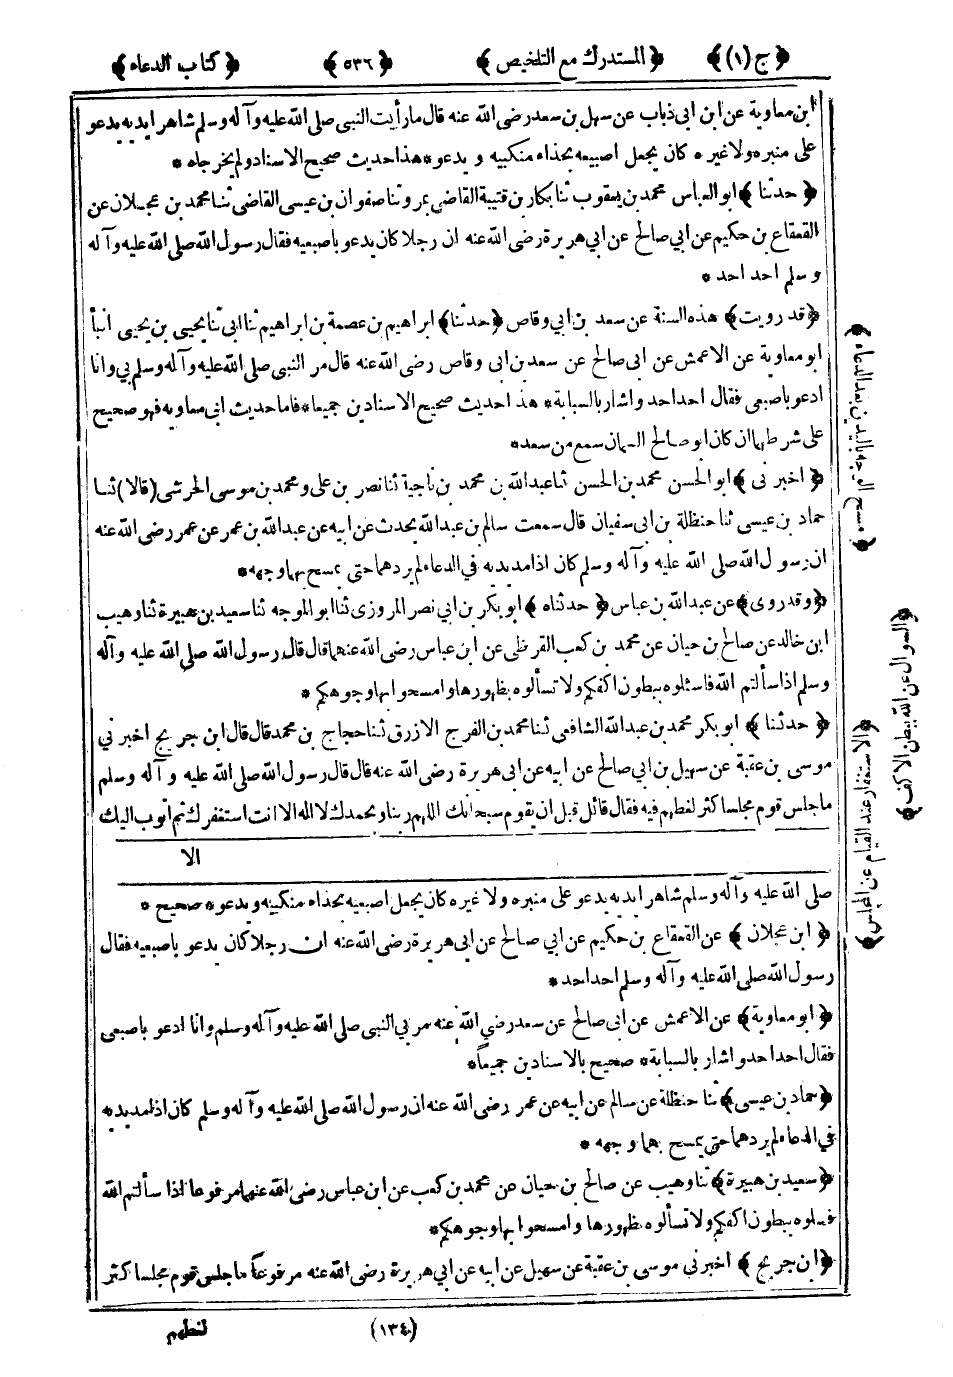 ﴿ ج (١) ﴾ ﴿ المستدرك مع التلخيص ﴾ ﴿ ٥٣٦ ﴾ ﴿ كتاب الدعاء ﴾
ابن معاوية عن ابن ابى ذباب عن سهل بن سعد رضى الله عنه قال ما رأيت النبى صلى الله عليه وآله وسلم شاهرا يديه يدعو
على منبره ولا غيره كان يجعل اصبعيه بحذاء منكبيه ويدعو * هذا حديث صحيح الاسناد ولم يخرجاه *
﴿ حدثنا ﴾ ابو العباس محمد بن يعقوب ثنا بكار بن قتيبة القاضى بمر وثنا صفوان بن عيسى القاضى ثنا محمد بن عجلان عن
القعقاع بن حكيم عن ابي صالح عن ابي هريرة رضى الله عنه ان رجلا كان يدعو باصبعيه فقال رسول الله صلى الله عليه وآله
وسلم احد احد *
﴿ قد رويت ﴾ هذه السنة عن سعد بن ابي وقاص ﴿ حدثنا ﴾ ابراهيم بن عصمة بن ابراهيم ثنا ابى ثنا يحيى بن يحيى انبأ
ابو معاوية عن الاعمش عن ابى صالح عن سعد بن ابى وقاص رضى الله عنه قال مر النبى صلى الله عليه وآله وسلم بي وانا
ادعو باصبعى فقال احد احد واشار بالسبابة * هذا حديث صحيح الاسنادين جميعا * فاما حديث ابى معاويه فهو صحيح
على شرطهما ان كان ابو صالح السمان سمع من سعد *
﴿ اخبرنى ﴾ ابو الحسن محمد بن الحسن ثنا عبد الله بن محمد بن ناجية ثنا نصر بن على ومحمد بن موسى الحرشى (قالا) ثنا
حماد بن عيسى ثنا حنظلة بن ابى سفيان قال سمعت سالم بن عبد الله يحدث عن ابيه عن عبد الله بن عمر عن عمر رضى الله عنه
ان رسول الله صلى الله عليه وآله وسلم كان اذا مد يديه في الدعاء لم يردهما حتى يمسح بهما وجهه *
﴿ وقد روى ﴾ عن عبد الله بن عباس ﴿ حدثناه ﴾ ابو بكر بن ابي نصر المروزى ثنا ابو الموجه ثنا سعيد بن هبيرة ثنا وهيب
ابن خالد عن صالح بن حيان عن محمد بن كعب القرظى عن ابن عباس رضى الله عنهما قال قال رسول الله صلى الله عليه وآله
وسلم اذا سألتم الله فاسئلوه ببطون اكفكم ولا تسألوه بظهورها وامسحوا بها وجوهكم *
﴿ حدثنا ﴾ ابو بكر محمد بن عبد الله الشافعى ثنا محمد بن الفرج الازرق ثنا حجاج بن محمد قال قال ابن جريج اخبرني
موسى بن عقبة عن سهيل بن ابي صالح عن ابيه عن ابى هريرة رضى الله عنه قال قال رسول الله صلى الله عليه وآله وسلم
ما جلس قوم مجلسا كثر لغطهم فيه فقال قائل قبل ان يقوم سبحانك اللهم ربنا وبحمدك لا اله الا انت استغفرك ثم اتوب اليك
الا
صلى الله عليه وآله وسلم شاهرا يديه يدعو على منبره ولا غيره كان يجعل اصبعيه بحذاء منكبيه ويدعو * صحيح *
﴿ ابن عجلان ﴾ عن القعقاع بن حكيم عن ابي صالح عن ابى هريرة رضى الله عنه ان رجلا كان يدعو باصبعيه فقال
رسول الله صلى الله عليه وآله وسلم احد احد *
﴿ ابو معاوية ﴾ عن الاعمش عن ابى صالح عن سعد رضي الله عنه مر بي النبى صلى الله عليه وآله وسلم وانا ادعو باصبعى
فقال احد احد واشار بالسبابة * صحيح بالاسنادين جميعاً *
﴿ حماد بن عيسى ﴾ ثنا حنظلة عن سالم عن ابيه عن عمر رضى الله عنه ان رسول الله صلى الله عليه وآله وسلم كان اذا مد يديه
في الدعاء لم يردهما حتى يمسح بهما وجهه *
﴿ سعيد بن هبيرة ﴾ ثنا وهيب عن صالح بن حيان عن محمد بن كعب عن ابن عباس رضى الله عنهما مرفوعا اذا سألتم الله
فسلوه ببطون اكفكم ولا تسألوه بظهورها وامسحوا بها وجوهكم *
﴿ ابن جريج ﴾ اخبرنى موسى بن عقبة عن سهيل عن ابيه عن ابي هريرة رضى الله عنه مرفوعاً ما جلس قوم مجلسا كثر
لغطهم
(١٣٤)
﴿ مسح الوجه باليدين بعد الدعاء ﴾
﴿ السوال عن الله ببطن الاكف ﴾
﴿ الاستغفار عند القيام عن المجلس ﴾